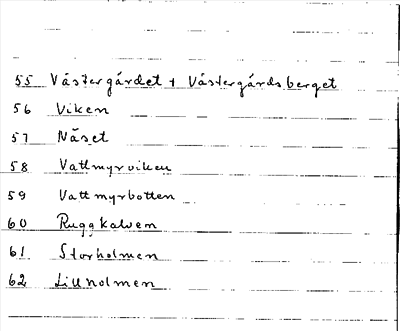 55 Västergärdet + Västergärdsberget
56 Viken
57 Näset
58 Vattmyrviken
59 Vattmyrbotten
60 Ruggkalven
61 Storholmen
62 Lillholmen